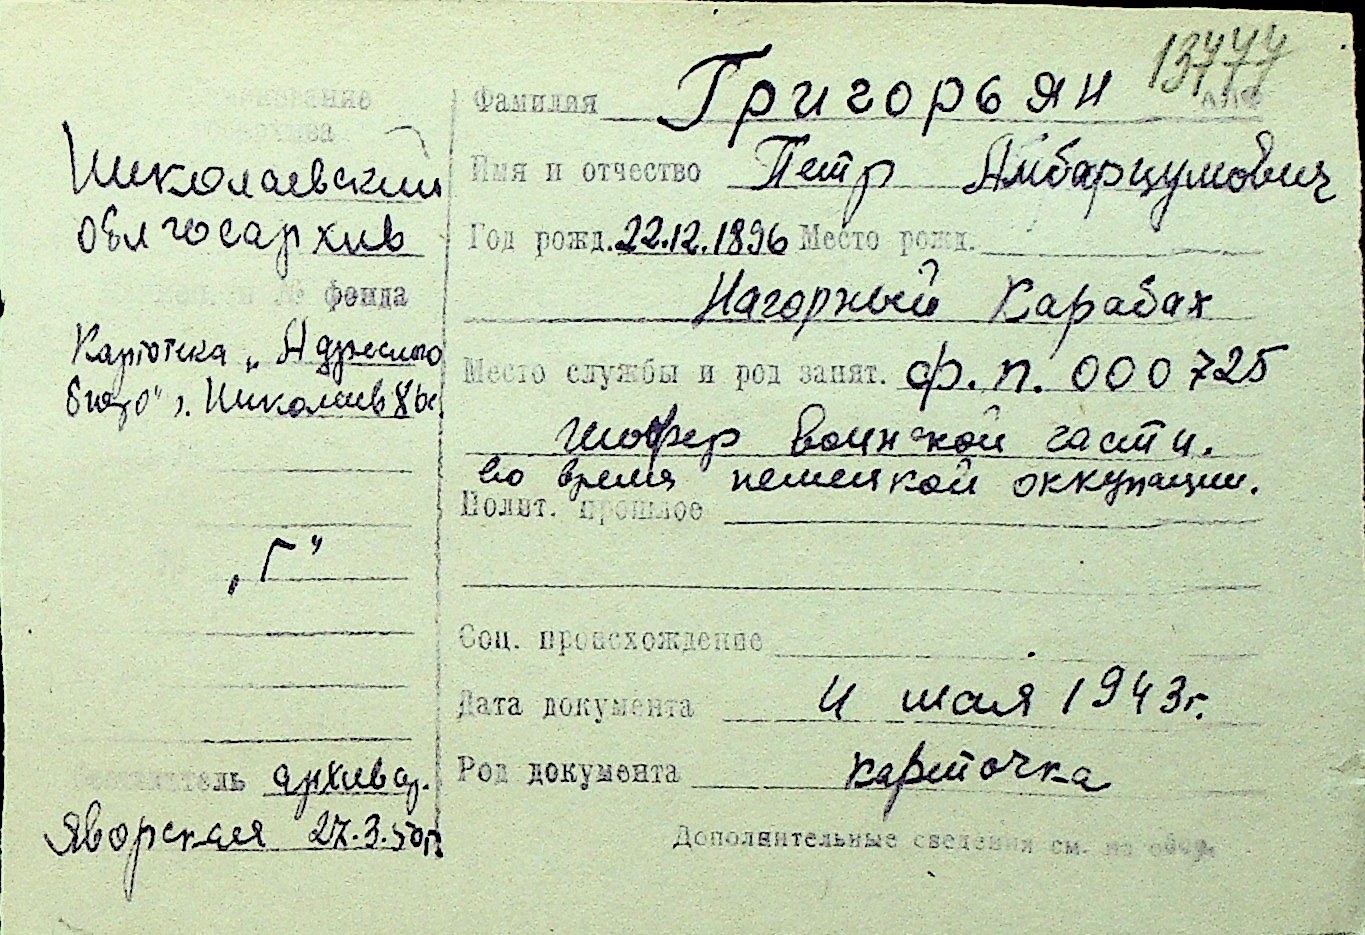 13777
Фамилия Григорьян
Имя и отчество Петр Амбарцумович
Год рожд. 22.12.1896 Место рожд.
Нагорный Карабах
Место службы и род занят. ф.п. 000725
шофер воинской части.
во время немецкой оккупации.
Полит. прошлое
Соц. происхождение
Дата документа 4 мая 1943г.
Род документа карточка
Дополнительные сведения см. на обор.
Николаевский
облгосархив
фонда
Картотека „Адресного
бюро" г. Николаев
„Г"
Составитель архивар.
Яворская 27.3.50г.